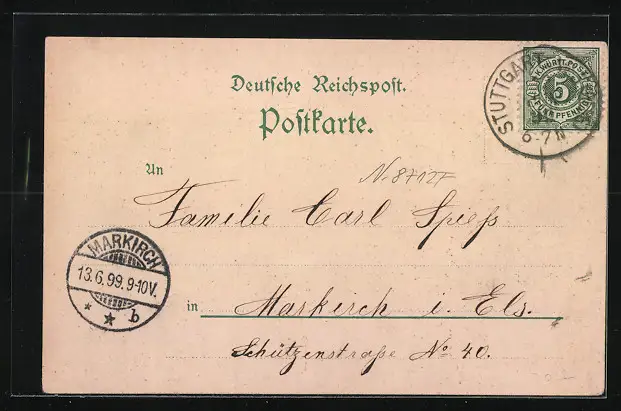 Deutsche Reichspost.
Postkarte.
STUTTGART
6-7N
K. WÜRTT. POST
5
FÜNF PFENNIG
An
Familie Carl Spieß
MARKIRCH
13.6.99.9-10V.
b
in Markirch i. Els.
Schützenstraße No 40.